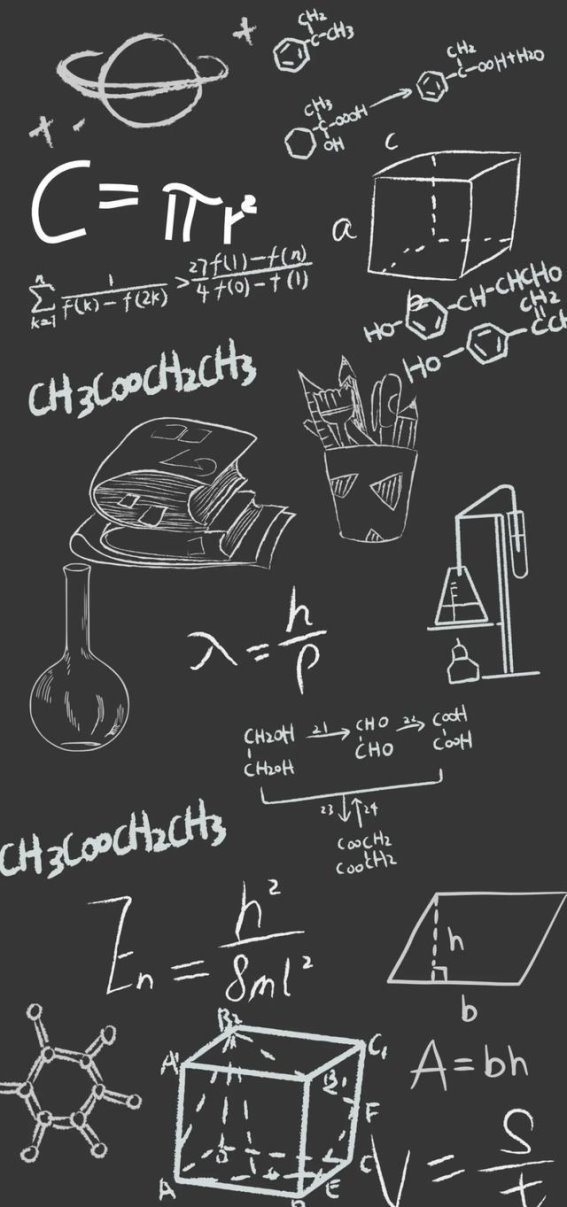 CH2
C-CH3
CH3
C-OOOH
OH
CH2
C-OOH+H2O
C = πr²
c
a
b
n
∑ 1/(f(k)-f(2k)) > 27/4 (f(1)-f(n))/(f(0)-f(1))
k=1
HO
CH-CHCHO
HO
CH2
CH3COOCH2CH3
λ = h/p
CH2OH 21 CHO 22 COOH
CH2OH CHO COOH
23 24
COOCH2
COOCH2
CH3COOCH2CH3
En = h²/8ml²
h
b
A = bh
B2
A' C1
B1
F
D C
A B E
V = S/t